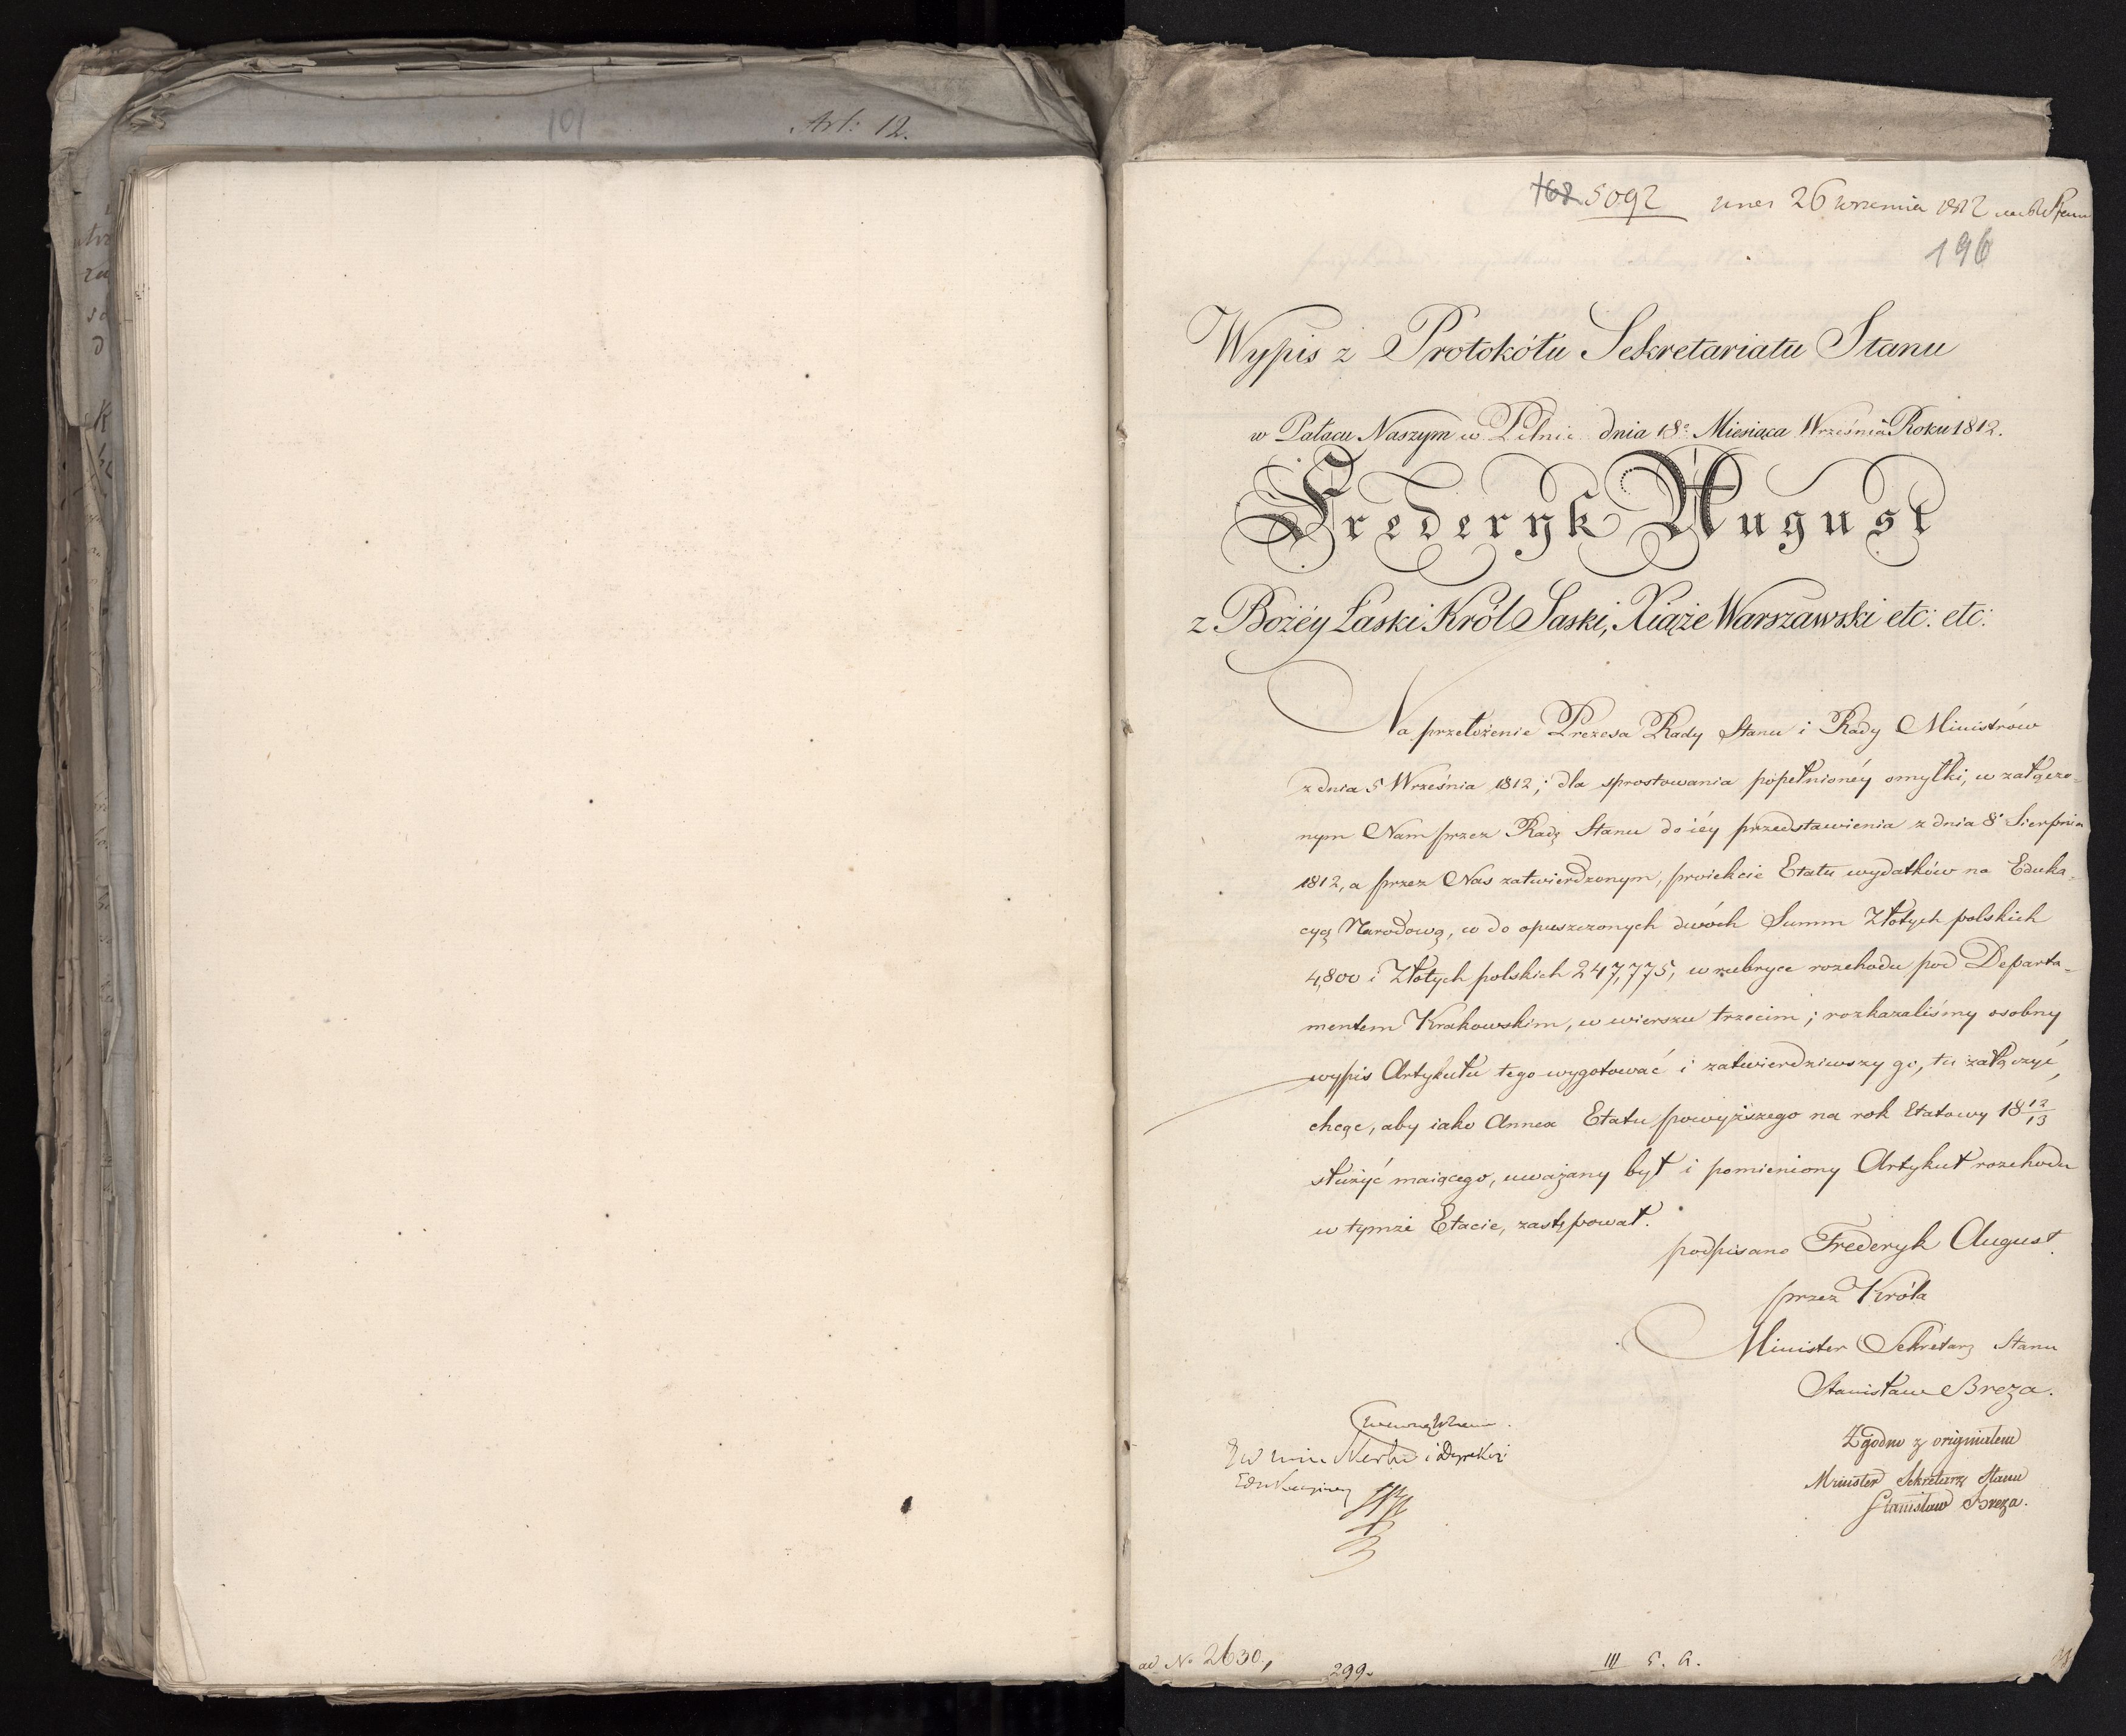 101
Art: 12.
168 5092 26 września 1812
196
Wypis z Protokółu Sekretariatu Stanu
w Pałacu Naszym w Pilnic dnia 18º Miesiąca Września Roku 1812.
Frederyk August
z Bożéy Łaski Król Saski, Xiąże Warszawski etc: etc:
Na przełożenie Prezesa Rady Stanu i Rady Ministrów
z dnia 5 Września 1812; dla sprostowania popełnionéy omyłki, w załączo-
nym Nam przez Radę Stanu do iéy przedstawienia z dnia 8º Sierpnia
1812, a przez Nas zatwierdzonym, proiekcie Etatu wydatków na Eduka-
cyą Narodową, co do opuszczonych dwóch Summ Złotych polskich
4,800 i Złotych polskich 247,775, w rubryce rozchodu pod Departa-
mentem Krakowskim, w wierszu trzecim; rozkazaliśmy osobny
wypis Artykułu tego wygotować i zatwierdziwszy go, tu załączyć,
chcąc, aby iako Annex Etatu powyższego na rok Etatowy 18 12/13
służyć maiącego, uważany był i pomieniony Artykuł rozchodu
w tymże Etacie, zastępował.
podpisano Frederyk August.
przez Króla
Minister Sekretarz Stanu
Stanisław Breza.
Zgodno z originałem
Minister Sekretarz Stanu
Stanisław Breza.
i Dyrekcyi
Edukacyiney
ad No 2630,
299.
III